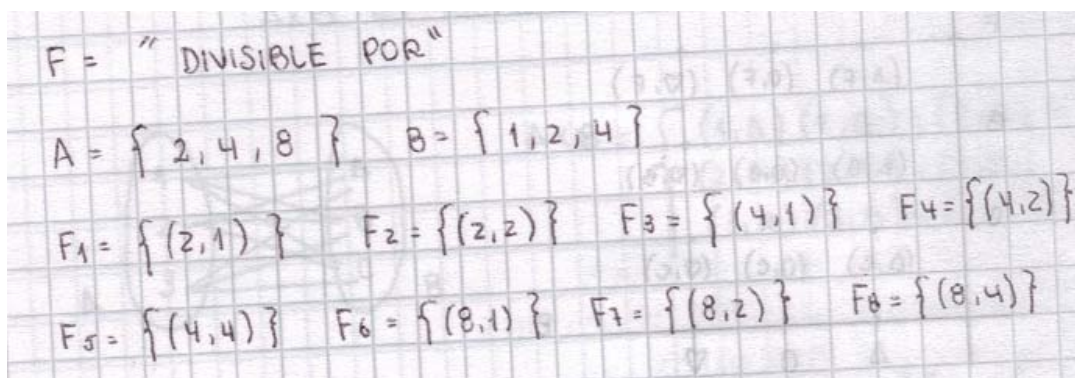 F = "DIVISIBLE POR"
A = { 2, 4, 8 } B = { 1, 2, 4 }
F1 = {(2,1)} F2 = {(2,2)} F3 = {(4,1)} F4 = {(4,2)}
F5 = {(4,4)} F6 = {(8,1)} F7 = {(8,2)} F8 = {(8,4)}